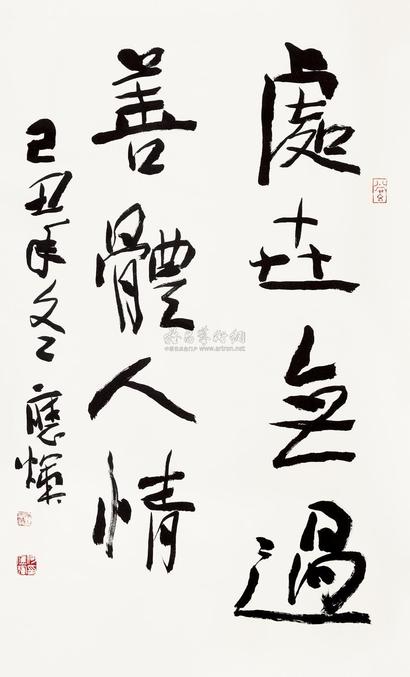 處世無過
善體人情
己丑年冬 應輝
雅昌藝術網
www.artron.net